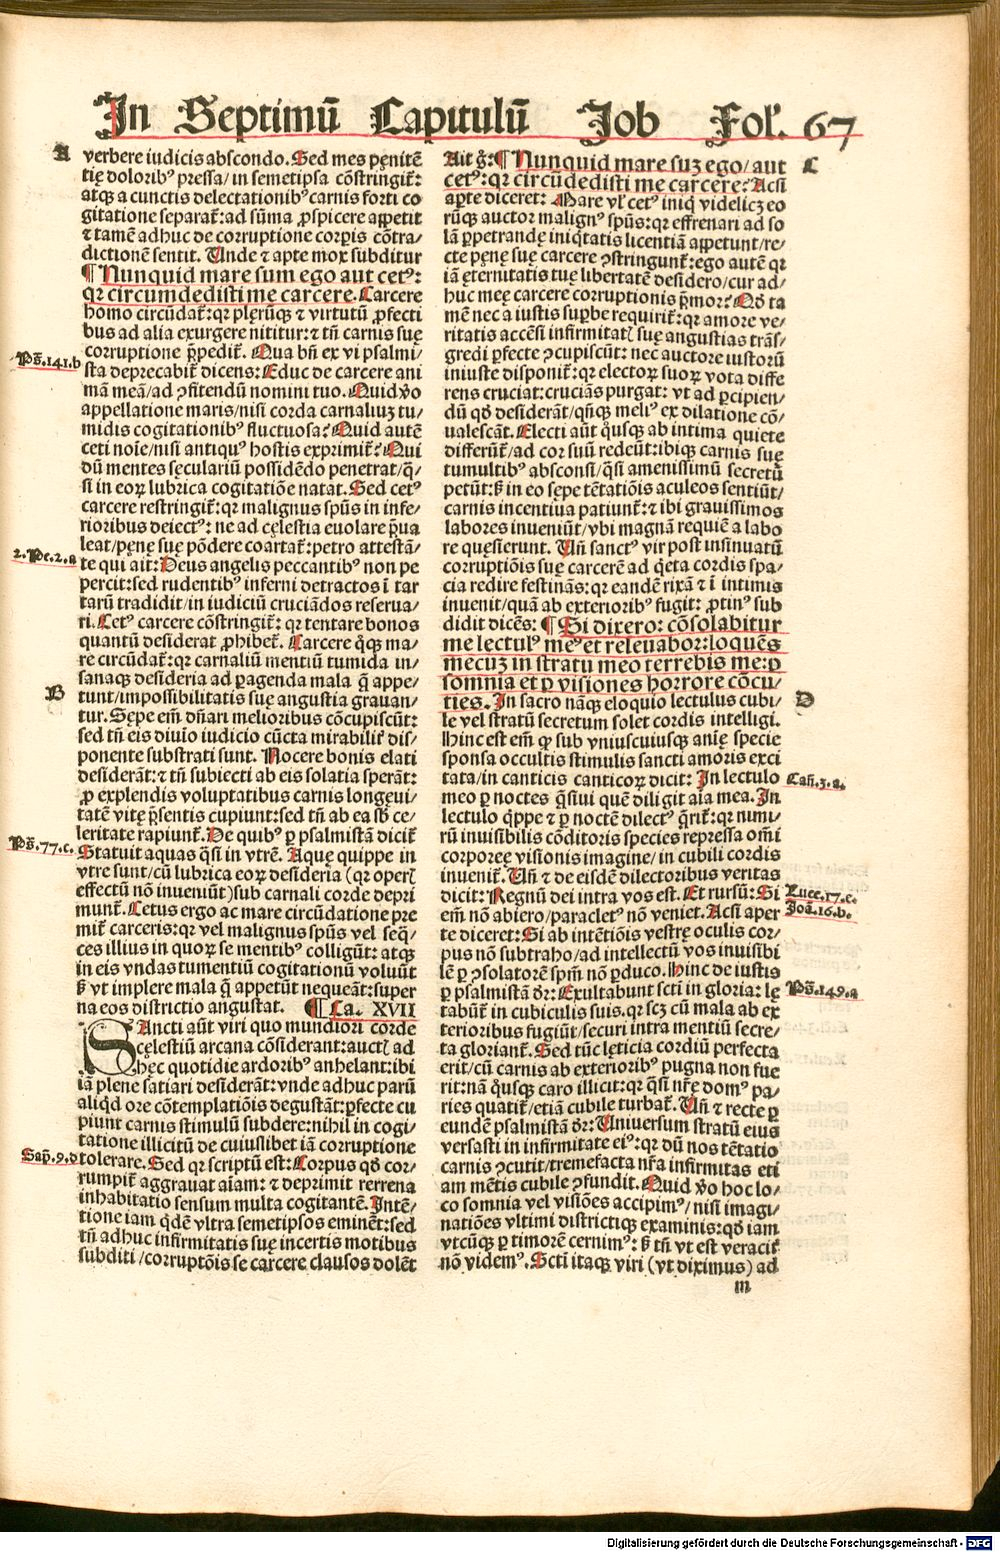 In Septimū Capitulū Job Fol. 67
A
verbere iudicis abscondo. Sed mes pęnitē
tię doloribꝰ pressa/ in semetipsa cōstringit̄:
atq̄ a cunctis delectationibꝰ carnis forti co
gitatione separat̄: ad sūma ꝓspicere appetit
⁊ tamē adhuc de corruptione corꝑis cōtra/
dictionē sentit. Unde ⁊ apte mox subditur
¶ Nunquid mare sum ego aut cetꝰ:
qꝛ circumdedisti me carcere. Carcere
homo circūdat̄: qꝛ plerūq̄ ⁊ virtutū ꝓfecti
bus ad alia exurgere nititur: ⁊ tn̄ carnis suę
corruptione p̄pedit̄. Qua bn̄ ex vi psalmi/
sta deprecabit̄ dicens: Educ de carcere ani
mā meā/ ad ꝯfitendū nomini tuo. Quid v̄o
appellatione maris/ nisi corda carnaliuꝫ tu/
midis cogitationibꝰ fluctuosa? Quid autē
ceti noīe/ nisi antiquꝰ hostis exprimit̄? Qui
dū mentes sęculariū possidēdo penetrat/ q̄/
si in eoꝝ lubrica cogitatiōe natat. Sed cetꝰ
carcere restringit̄: qꝛ malignus spūs in infe/
rioribus deiectꝰ: ne ad cęlestia euolare p̄ua
leat/ pęnę suę pōdere coartat̄: petro attestā/
te qui ait: Deus angelis peccantibꝰ non pe
percit: sed rudentibꝰ inferni detractos ī tar
tarū tradidit/ in iudiciū cruciādos reserua/
ri. Cetꝰ carcere cōstringit̄: qꝛ tentare bonos
quantū desiderat ꝓhibet̄. Carcere q̊q̄ ma/
re circūdat̄: qꝛ carnaliū mentiū tumida in/
sanaq̄ desideria ad ꝑagenda mala q̄ appe/
tunt/ impossibilitatis suę angustia grauan/
tur. Sępe em̄ dn̄ari melioribus cōcupiscūt:
sed tn̄ eis diuīo iudicio cūcta mirabilit̄ dis/
ponente substrati sunt. Nocere bonis elati
desiderāt: ⁊ tn̄ subiecti ab eis solatia sperāt:
ꝓ explendis voluptatibus carnis longęui/
tatē vitę pn̄sentis cupiunt: sed tn̄ ab ea sb̄ ce/
leritate rapiunt̄. De quibꝰ ꝑ psalmistā dicit̄
Statuit aquas q̄si in vtrē. Aquę quippe in
vtre sunt/ cū lubrica eoꝝ desideria (qꝛ operꝭ
effectū nō inueniūt) sub carnali corde depri
munt̄. Cetus ergo ac mare circūdatione pre
mit̄ carceris: qꝛ vel malignus spūs vel seq̄/
ces illius in quoꝝ se mentibꝰ colligūt: atq̄
in eis vndas tumentiū cogitationū voluūt
ꝫ vt implere mala q̄ appetūt nequeāt: super
na eos districtio angustat. ¶ Ca. XVII
SAncti aūt viri quo mundiori corde
cęlestiū arcana cōsiderant: auctꝭ ad
hęc quotidie ardoribꝰ anhelant: ibi
iā plene satiari desiderāt: vnde adhuc parū
aliqd ore cōtemplatiōis degustāt: ꝑfecte cu
piunt carnis stimulū subdere: nihil in cogi/
tatione illicitū de cuiuslibet iā corruptione
tolerare. Sed qꝛ scriptū est: Corpus qd̄ cor/
rumpit̄ aggrauat aīam: ⁊ deprimit terrena
inhabitatio sensum multa cogitantē. Intē/
tione iam q̇dē vltra semetipsos eminēt: sed
tn̄ adhuc infirmitatis suę incertis motibus
subditi/ corruptōis se carcere clausos dolēt
Ps̄. 141. b
2. Pe. 2. a
B
Ps̄. 77. c.
Sap̄. 9. d
Ait g̊: ¶ Nunquid mare suꝫ ego/ aut
cetꝰ: qꝛ circūdedisti me carcere? Acsi
aꝑte diceret: Mare vl̓ cetꝰ iniq̇ videlicꝫ eo
rūq̄ auctor malignꝰ spūs: qꝛ effrenari ad so
lā ꝑpetrandę iniq̇tatis licentiā appetunt/ re/
cte pęnę suę carcere ꝯstringunt̄: ego autē qꝛ
iā ęternitatis tuę libertatē desidero/ cur ad/
huc meę carcere corruptionis p̄mor? Qd̄ ta
mē nec a iustis suꝑbe requirit̄: qꝛ amore ve/
ritatis accēsi infirmitatꝭ suę angustias trās/
gredi ꝑfecte ꝯcupiscūt: nec auctore iustorū
iniuste disponit̄: qꝛ electoꝝ suoꝝ vota diffe
rens cruciat: crucians purgat: vt ad ꝑcipien/
dū qd̄ desiderāt/ qn̄q̄ meliꝰ ex dilatione cō/
ualescāt. Electi aūt q̊usq̄ ab intima quiete
differūt̄/ ad cor suū redeūt: ibiq̄ carnis suę
tumultibꝰ absconsi/ q̄si amenissimū secretū
petūt: ꝫ in eo sępe tētatiōis aculeos sentiūt/
carnis incentiua patiunt̄: ⁊ ibi grauissimos
labores inueniūt/ vbi magnā requiē a labo
re quęsierunt. Un̄ sanctꝰ vir post insinuatū
corruptiōis suę carcerē ad q̇eta cordis spa/
cia redire festinās: qꝛ eandē rixā ⁊ ī intimis
inuenit/ quā ab exterioribꝰ fugit: ꝓtinꝰ sub
didit dicēs: ¶ Si dixero: cōsolabitur
me lectulꝰ meꝰ et releuabor: loquēs
mecuꝫ in stratu meo terrebis me: ꝑ
somnia et ꝑ visiones horrore cōcu/
ties. In sacro nāq̄ eloquio lectulus cubi/
le vel stratū secretum solet cordis intelligi.
Hinc est em̄ ꝙ sub vniuscuiusq̄ anię specie
sponsa occultis stimulis sancti amoris exci
tata/ in canticis canticoꝝ dicit: In lectulo
meo ꝑ noctes q̄siui quē diligit aīa mea. In
lectulo q̇ppe ⁊ ꝑ noctē dilectꝰ q̄rit̄: qꝛ nimi/
rū inuisibilis cōditoris species repressa omī
corporeę visionis imagine/ in cubili cordis
inuenit̄. Un̄ ⁊ de eisdē dilectoribus veritas
dicit: Regnū dei intra vos est. Et rursū: Si
em̄ nō abiero/ paracletꝰ nō veniet. Acsi aper
te diceret: Si ab intētiōis vestrę oculis cor/
pus nō subtraho/ ad intellectū vos inuisibi
lē ꝑ ꝯsolatorē spm̄ nō ꝑduco. Hinc de iustis
ꝑ psalmistā dr̄: Exultabunt scti in gloria: lę
tabūt̄ in cubiculis suis. qꝛ scꝫ cū mala ab ex
terioribus fugiūt/ securi intra mentiū secre/
ta gloriant̄. Sed tūc lęticia cordiū perfecta
erit/ cū carnis ab exterioribꝰ pugna non fue
rit: nā q̊usq̄ caro illicit: qꝛ q̄si nr̄ę domꝰ pa/
ries quatit̄/ etiā cubile turbat̄. Un̄ ⁊ recte ꝑ
eundē psalmistā dr̄: Uniuersum stratū eius
versasti in infirmitate eiꝰ: qꝛ dū nos tētatio
carnis ꝯcutit/ tremefacta nr̄a infirmitas eti
am mētis cubile ꝯfundit. Quid v̄o hoc lo/
co somnia vel visiōes accipimꝰ/ nisi imagi/
natiōes vltimi districtiq̄ examinis: qd̄ iam
vtcūq̄ ꝑ timorē cernimꝰ: ꝫ tn̄ vt est veracit̄
nō videmꝰ. Scti itaq̄ viri (vt diximus) ad
m
C
D
Can̄. 3. a.
Luce. 17. c.
Joā. 16. b.
Ps̄. 149. a
Digitalisierung gefördert durch die Deutsche Forschungsgemeinschaft - DFG